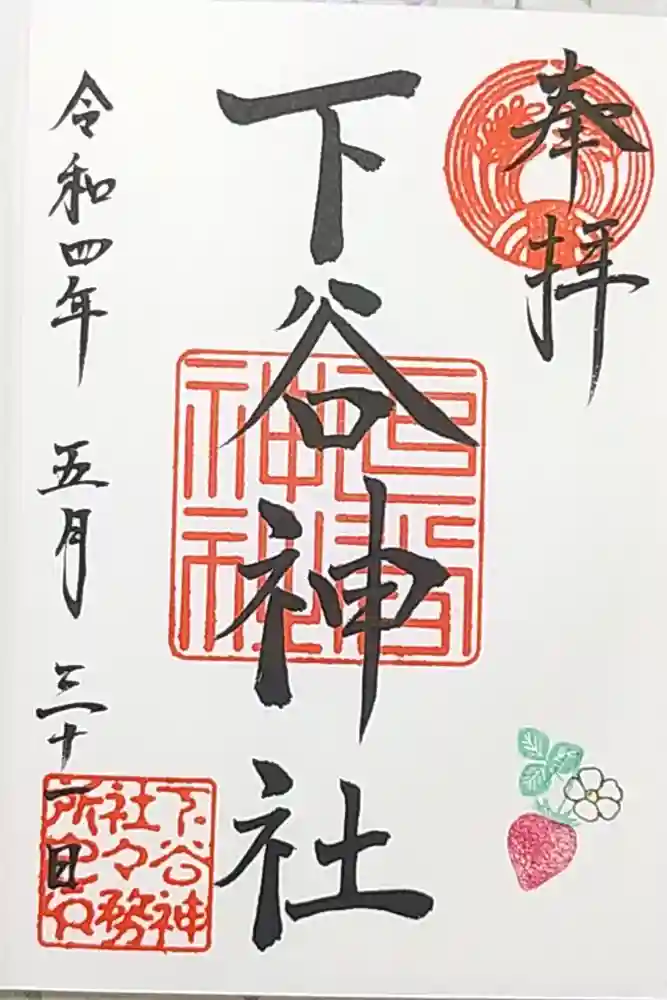 奉拝
下谷神社
令和四年 五月 三十一日
下谷神
社々務
所之印